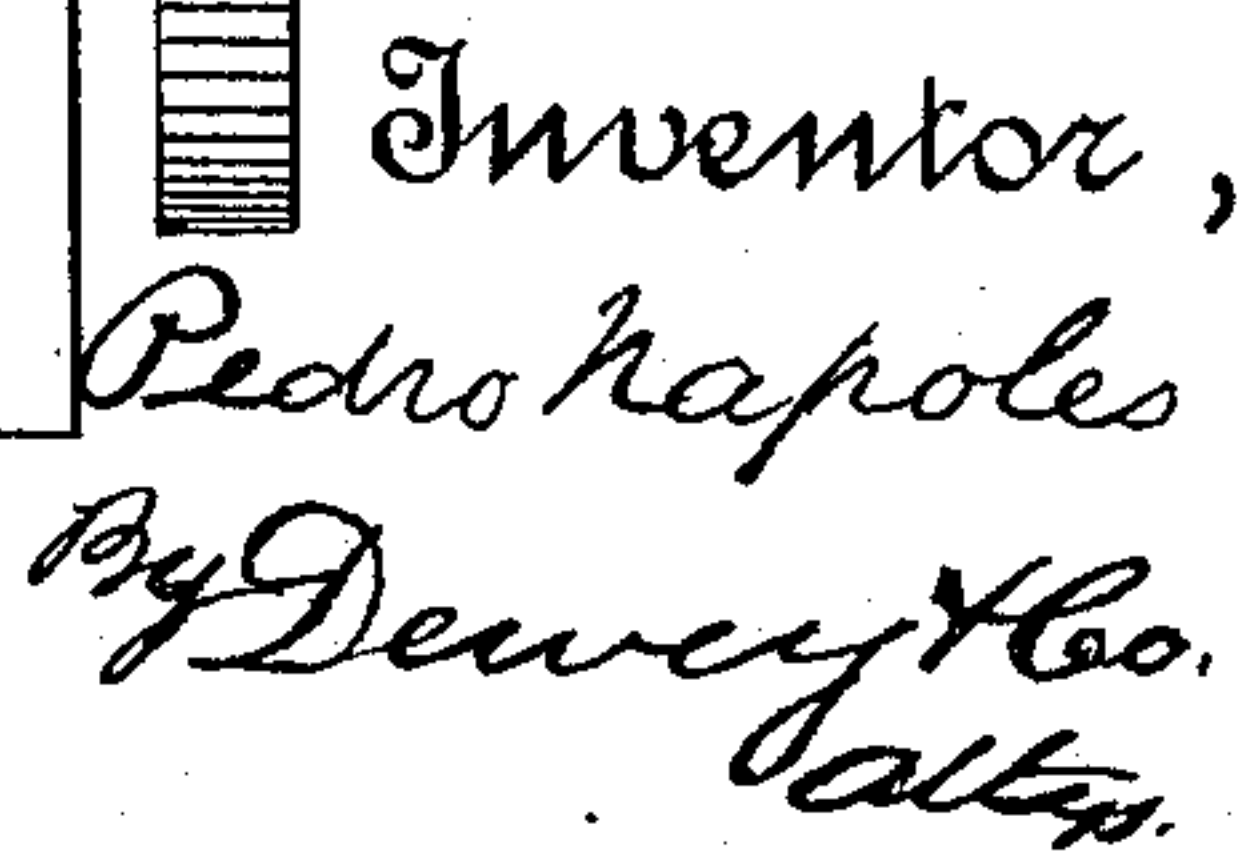 Inventor,
Pedro Napoles
By Dewey & Co.
attys.